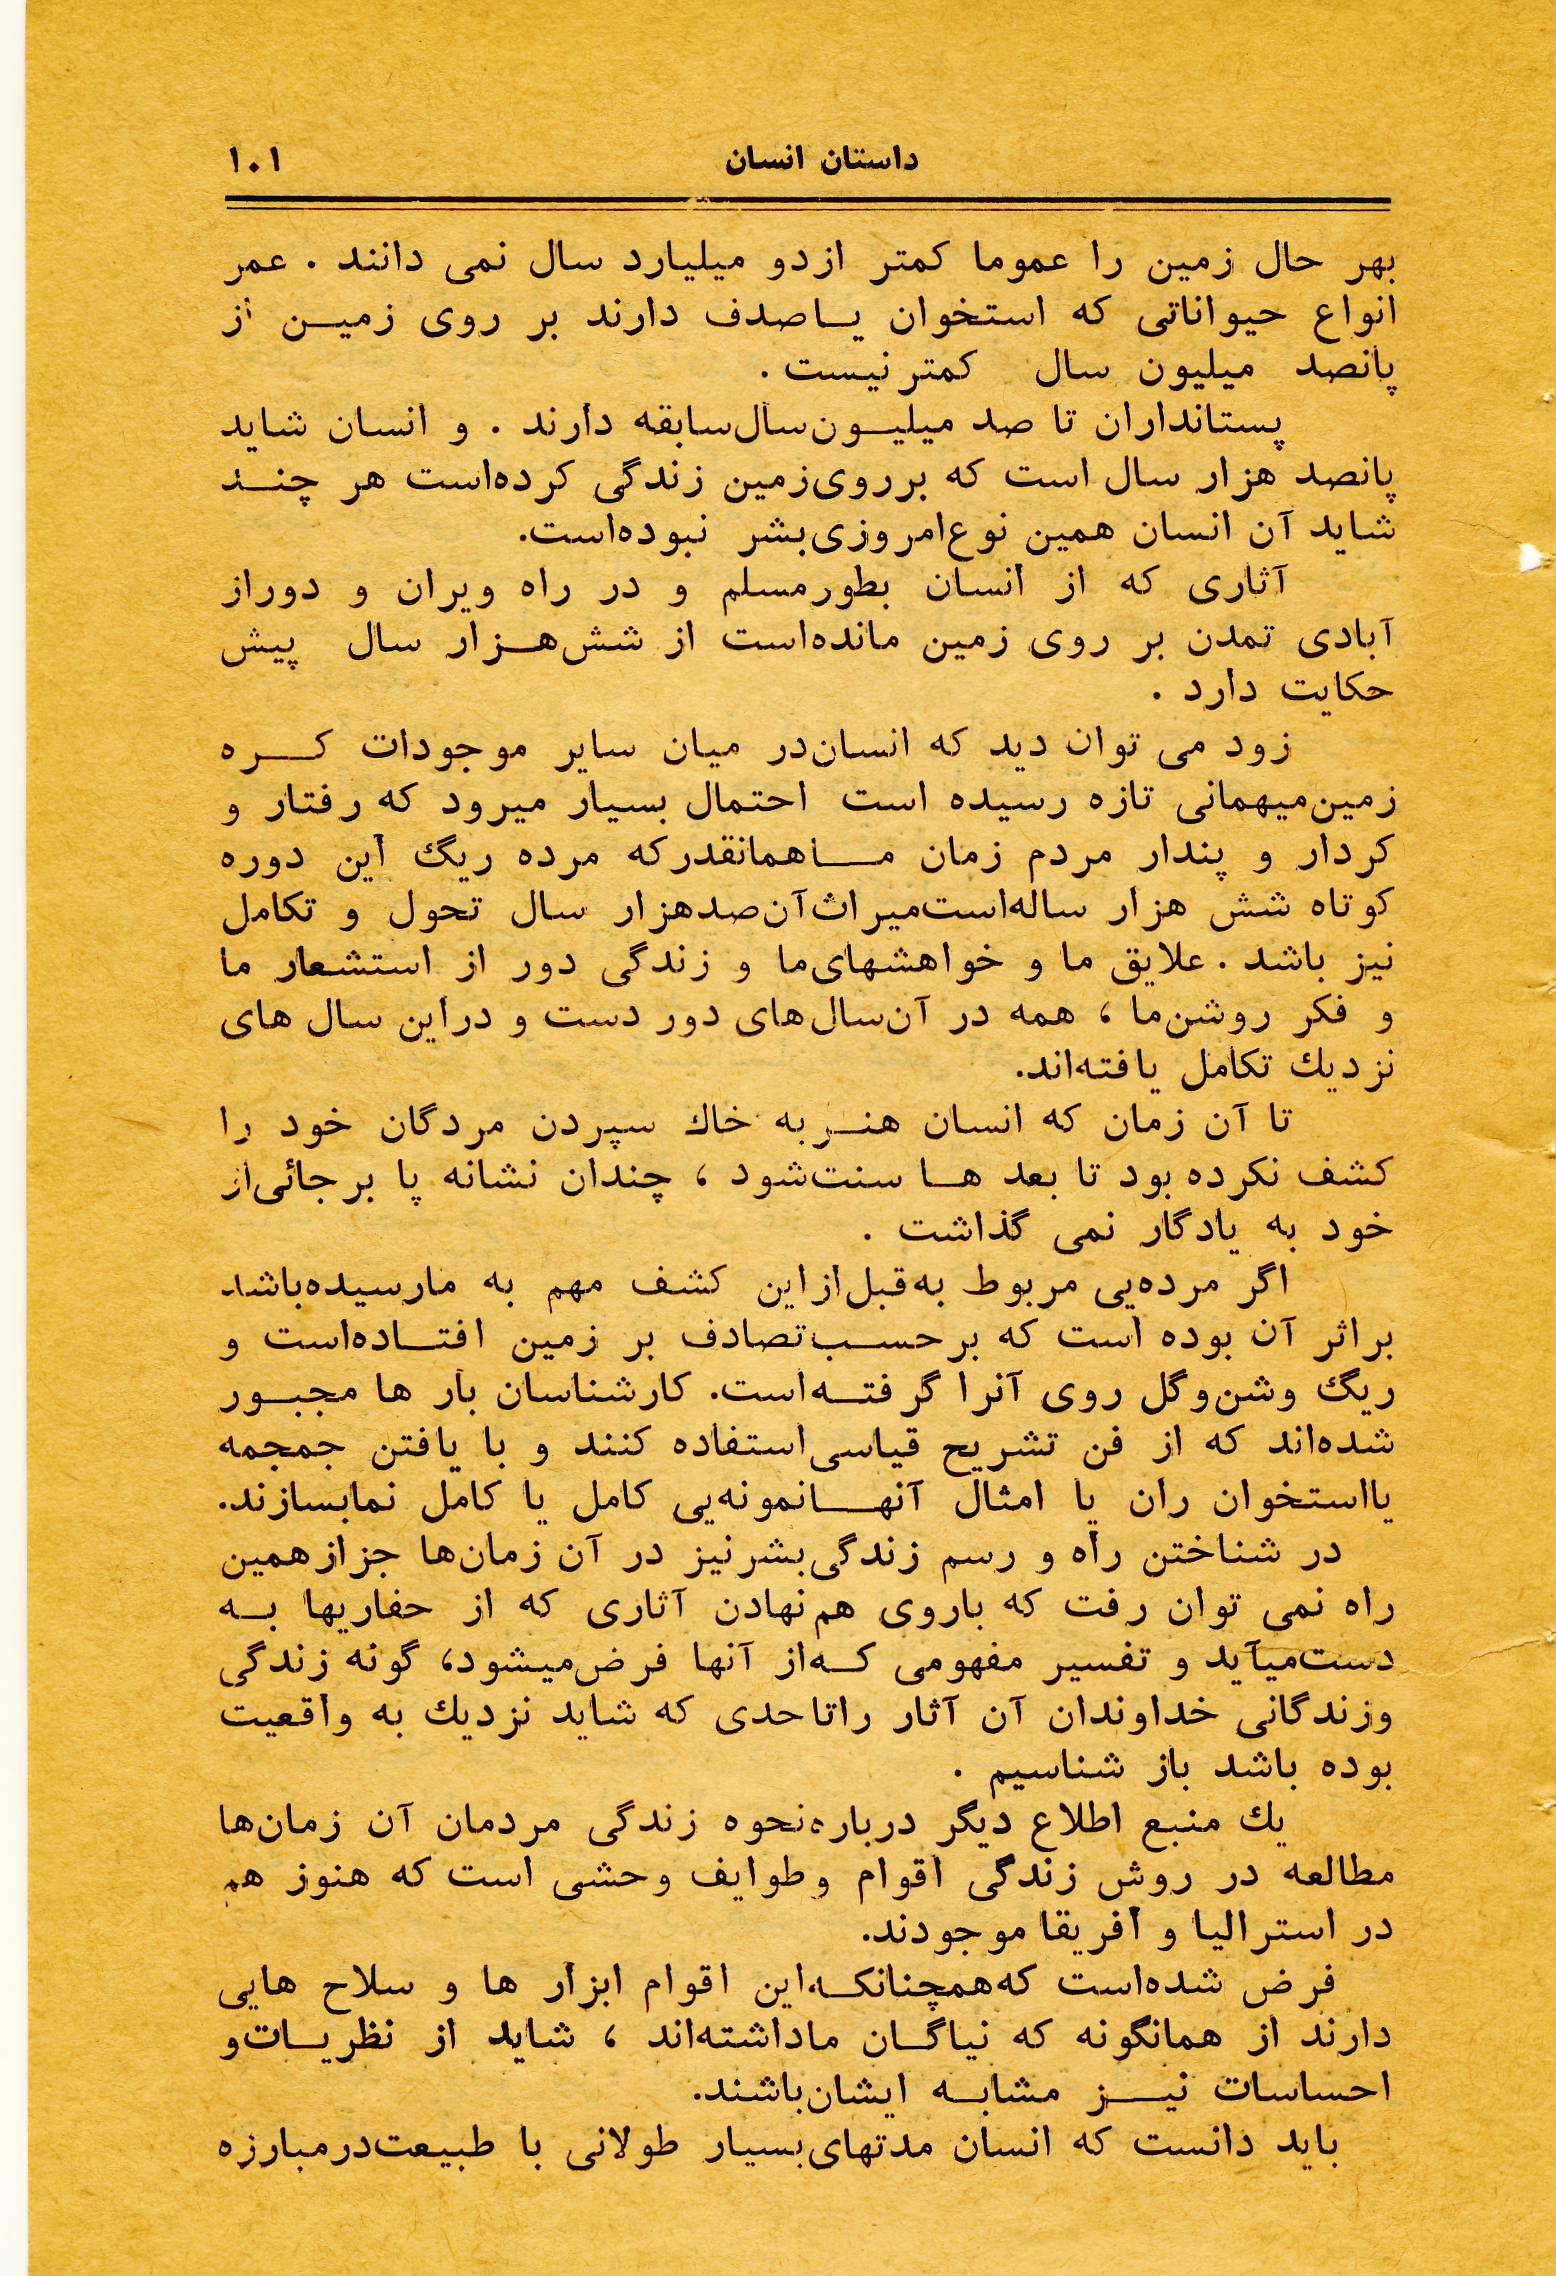 داستان انسان ۱۰۱
بهر حال زمین را عموما کمتر ازدو میلیارد سال نمی دانند . عمر
انواع حیواناتی که استخوان یاصدف دارند بر روی زمین از
پانصد میلیون سال کمتر نیست .
پستانداران تا صد میلیون سال سابقه دارند . و انسان شاید
پانصد هزار سال است که برروی زمین زندگی کرده‌است هر چند
شاید آن انسان همین نوع امروزی بشر نبوده‌است.
آثاری که از انسان بطورمسلم و در راه ویران و دوراز
آبادی تمدن بر روی زمین مانده‌است از شش هزار سال پیش
حکایت دارد .
زود می توان دید که انسان در میان سایر موجودات کره
زمین میهمانی تازه رسیده است احتمال بسیار میرود که رفتار و
کردار و پندار مردم زمان ما همانقدر که مرده ریگ این دوره
کوتاه شش هزار ساله‌است میراث آن صدهزار سال تحول و تکامل
نیز باشد . علایق ما و خواهشهای ما و زندگی دور از استشعار ما
و فکر روشن ما ، همه در آن سال های دور دست و دراین سال های
نزدیك تکامل یافته‌اند.
تا آن زمان که انسان هنر به خاك سپردن مردگان خود را
کشف نکرده بود تا بعد ها سنت شود ، چندان نشانه پا برجائی از
خود به یادگار نمی گذاشت .
اگر مرده‌یی مربوط به قبل از این کشف مهم به ما رسیده باشد
براثر آن بوده است که برحسب تصادف بر زمین افتاده‌است و
ریگ وشن و گل روی آنرا گرفته‌است. کارشناسان بار ها مجبور
شده‌اند که از فن تشریح قیاسی استفاده کنند و با یافتن جمجمه
یااستخوان ران یا امثال آنها نمونه‌یی کامل یا کامل نما بسازند.
در شناختن راه و رسم زندگی بشر نیز در آن زمان‌ها جز از همین
راه نمی توان رفت که باروی هم نهادن آثاری که از حفاریها به
دست میآید و تفسیر مفهومی که از آنها فرض میشود، گونه زندگی
وزندگانی خداوندان آن آثار را تا حدی که شاید نزدیك به واقعیت
بوده باشد باز شناسیم .
یك منبع اطلاع دیگر درباره نحوه زندگی مردمان آن زمان‌ها
مطالعه در روش زندگی اقوام و طوایف وحشی است که هنوز هم
در استرالیا و آفریقا موجودند.
فرض شده‌است که همچنانکه این اقوام ابزار ها و سلاح هایی
دارند از همانگونه که نیاگان ما داشته‌اند ، شاید از نظریات و
احساسات نیز مشابه ایشان باشند.
باید دانست که انسان مدتهای بسیار طولانی با طبیعت در مبارزه